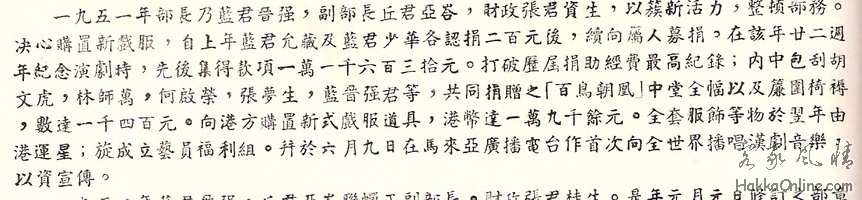 一九五一年部長乃藍君晉强，副部長丘君亞峇，財政張君資生，以蔟新活力，整頓部務。
决心購置新戲服，自上年藍君允藏及藍君少華各認捐二百元後，續向屬人募捐。在該年廿二週
年紀念演劇時，先後集得欵項一萬一千六百三拾元。打破歷屆捐助經費最高紀錄；內中包刮胡
文虎，林師萬，何啟榮，張夢生，藍晉强君等，共同捐贈之「百鳥朝凰」中堂全幅以及簾圍椅褥
，數達一千四百元。向港方購置新式戲服道具，港幣達一萬九千餘元。全套服飾等物於翌年由
港運星；旋成立藝員福利組。幷於六月九日在馬來亞廣播電台作首次向全世界播唱漢劇音樂，
以資宣傳。
客家風情
HakkaOnline.com